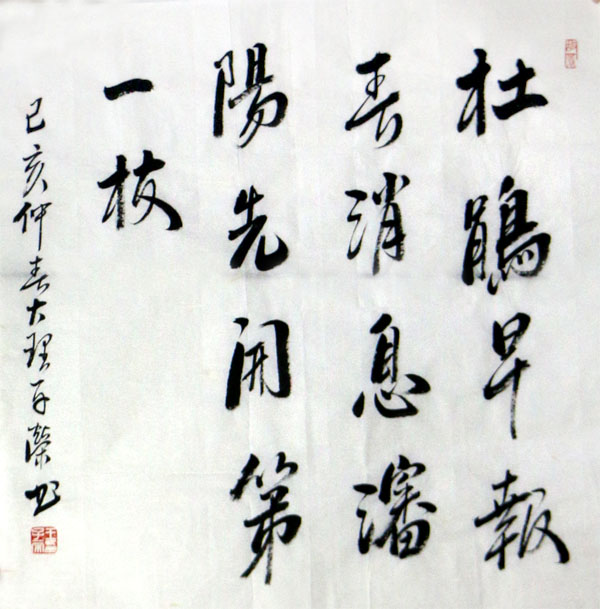 杜鵑早報
春消息瀋
陽先開第
一枝
己亥仲春大理子榮书